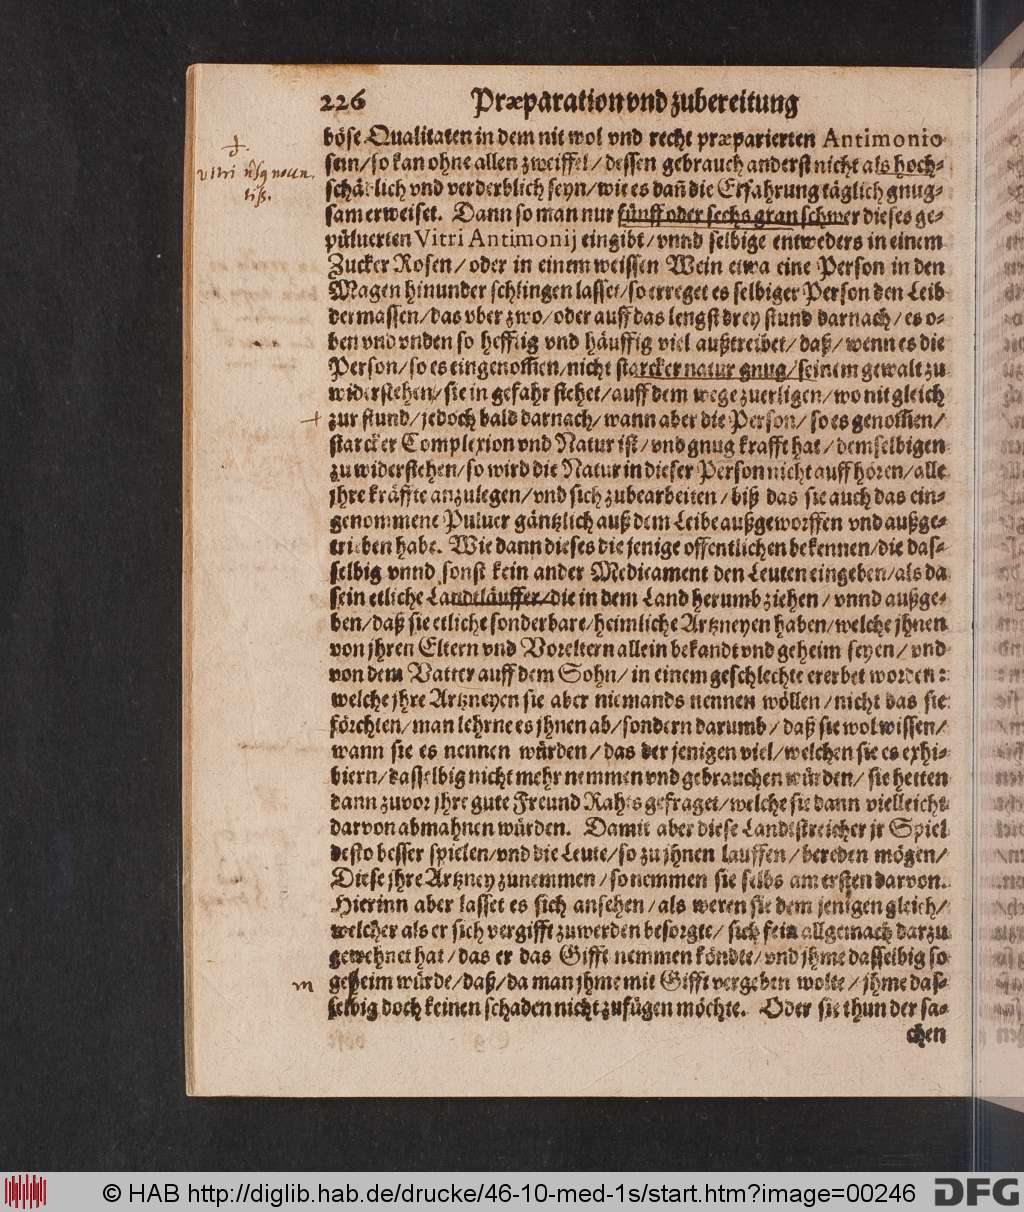 226 Præparation vnd zubereitung
böse Qualitaten in dem nit wol vnd recht præparierten Antimonio
sein/so kan ohne allen zweiffel/dessen gebrauch anderst nicht als hoch⸗
schädlich vnd verderblich seyn/wie es dañ die Erfahrung täglich gnug⸗
sam erweiset. Dann so man nur fünff oder sechs gran schwer dieses ge⸗
püluerten Vitri Antimonij eingibt/vnnd selbige entweders in einem
Zucker Rosen/oder in einem weissen Wein etwa eine Person in den
Magen hinunder schlingen lasset/so erreget es selbiger Person den Leib
dermassen/das vber zwo/oder auff das lengst drey stund darnach/es o⸗
ben vnd vnden so hefftig vnd häuffig viel außtreibet/daß/wenn es die
Person/so es eingenom̃en/nicht starcker natur gnug/seinem gewalt zu
widerstehen/sie in gefahr stehet/auff dem wege zuerligen/wo nit gleich
zur stund/jedoch bald darnach/wann aber die Person/so es genom̃en/
starcker Complexion vnd Natur ist/vnd gnug krafft hat/demselbigen
zu widerstehen/so wird die Natur in dieser Person nicht auffhören/alle
jhre kräffte anzulegen/vnd sich zubearbeiten/biß das sie auch das ein⸗
genommene Puluer gäntzlich auß dem Leibe außgeworffen vnd außge⸗
trieben habe. Wie dann dieses die jenige offentlichen bekennen/die das⸗
selbig vnnd sonst kein ander Medicament den Leuten eingeben/als da
sein etliche Landtläuffer/die in dem Land herumb ziehen/vnnd außge⸗
ben/daß sie etliche sonderbare/heimliche Artzneyen haben/welche jhnen
von jhren Eltern vnd Voreltern allein bekandt vnd geheim seyen/vnd
von dem Vatter auff dem Sohn/in einem geschlechte ererbet worden:
welche jhre Artzneyen sie aber niemands nennen wöllen/nicht das sie
förchten/man lehrne es jhnen ab/sondern darumb/daß sie wol wissen/
wann sie es nennen würden/das der jenigen viel/welchen sie es exhi⸗
biern/dasselbig nicht mehr nemmen vnd gebrauchen würden/sie hetten
dann zuvor jhre gute Freund Rahts gefraget/welche sie dann vielleicht
darvon abmahnen würden. Damit aber diese Landtstreicher jr Spiel
desto besser spielen/vnd die Leute/so zu jhnen lauffen/bereden mögen/
Diese jhre Artzney zunemmen/so nemmen sie selbs am ersten darvon.
Hierinn aber lasset es sich ansehen/als weren sie dem jenigen gleich/
welcher als er sich vergifft zuwerden besorgte/sich fein allgemach darzu
gewehnet hat/das er das Gifft nemmen köndte/vnd jhme dasselbig so
geheim würde/daß/da man jhme mit Gifft vergeben wolte/jhme das⸗
selbig doch keinen schaden nicht zufügen möchte. Oder sie thun der sa⸗
chen
vitri
© HAB http://diglib.hab.de/drucke/46-10-med-1s/start.htm?image=00246
DFG